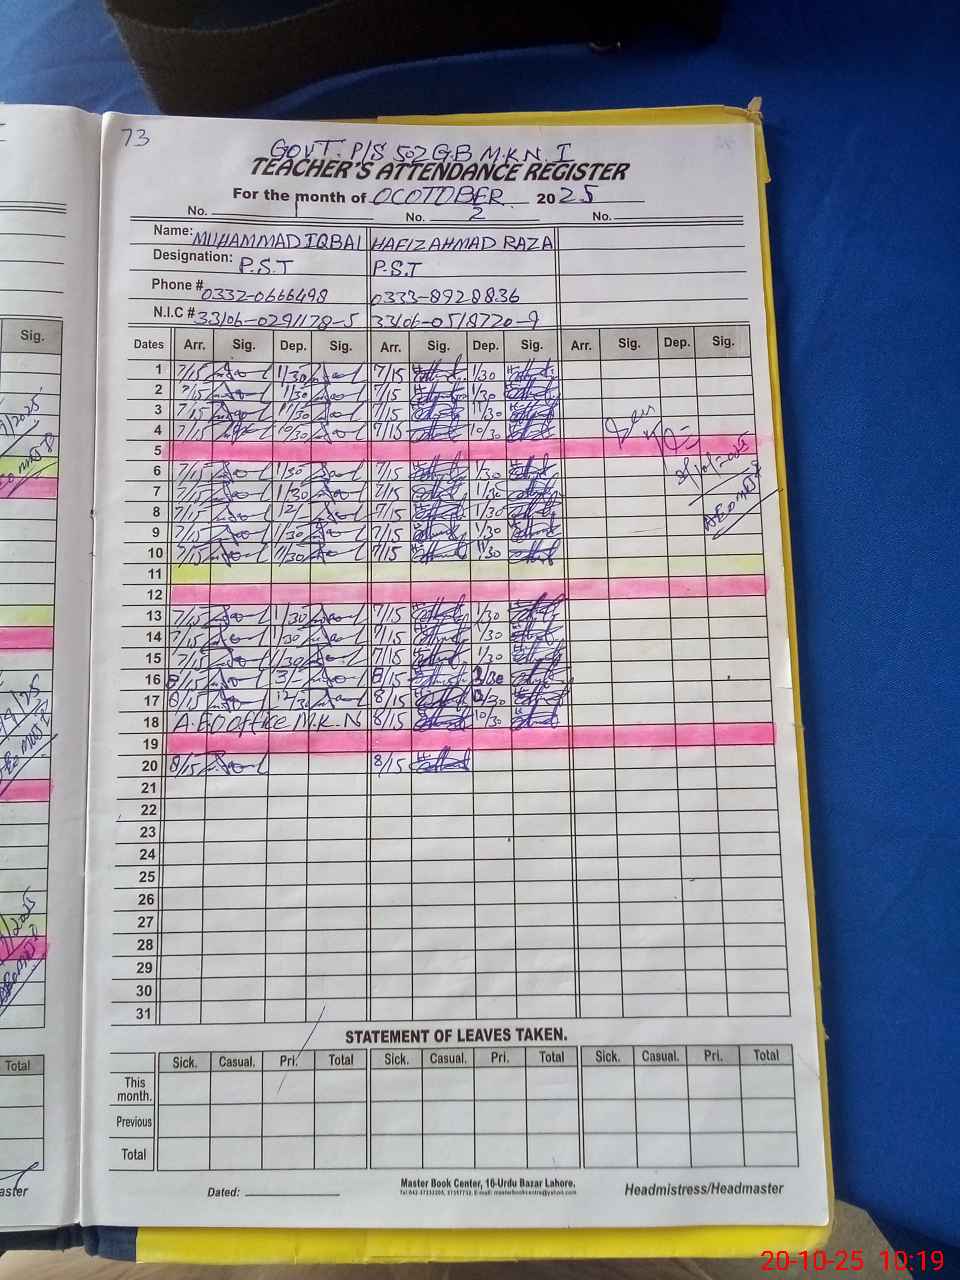 73
GOVT. P/S 502 G.B M.K.N. I
TEACHER'S ATTENDANCE REGISTER
For the month of OCOTOBER 2025
No. 1 No. 2 No.
Name: MUHAMMAD IQBAL HAFIZ AHMAD RAZA
Designation: P.S.T P.S.T
Phone # 0332-0666498 0333-8928836
N.I.C # 33106-0291178-5 33106-0518720-9
Dates Arr. Sig. Dep. Sig. Arr. Sig. Dep. Sig. Arr. Sig. Dep. Sig.
1 7/15 1/30 7/15 1/30
2 7/15 1/30 7/15 1/30
3 7/15 7/15 1/30
4 7/15 10/30 7/15 10/30
5
6 7/15 1/30 7/15 1/30
7 7/15 1/30 7/15 1/30
8 7/15 7/15 1/30
9 7/15 1/30 7/15 1/30
10 7/15 7/15
11
12
13 7/15 1/30 7/15 1/30
14 7/15 1/30 7/15 1/30
15 7/15 1/30 7/15 1/30
16 8/15 8/15
17 8/15 8/15
18 A.EO office M.K.N 8/15 10/30
19
20 8/15 8/15
21
22
23
24
25
26
27
28
29
30
31
STATEMENT OF LEAVES TAKEN.
Sick. Casual. Pri. Total Sick. Casual. Pri. Total Sick. Casual. Pri. Total
This month.
Previous
Total
Dated:
Master Book Center, 16-Urdu Bazar Lahore.
Headmistress/Headmaster
Sig.
Total
20-10-25 10:19